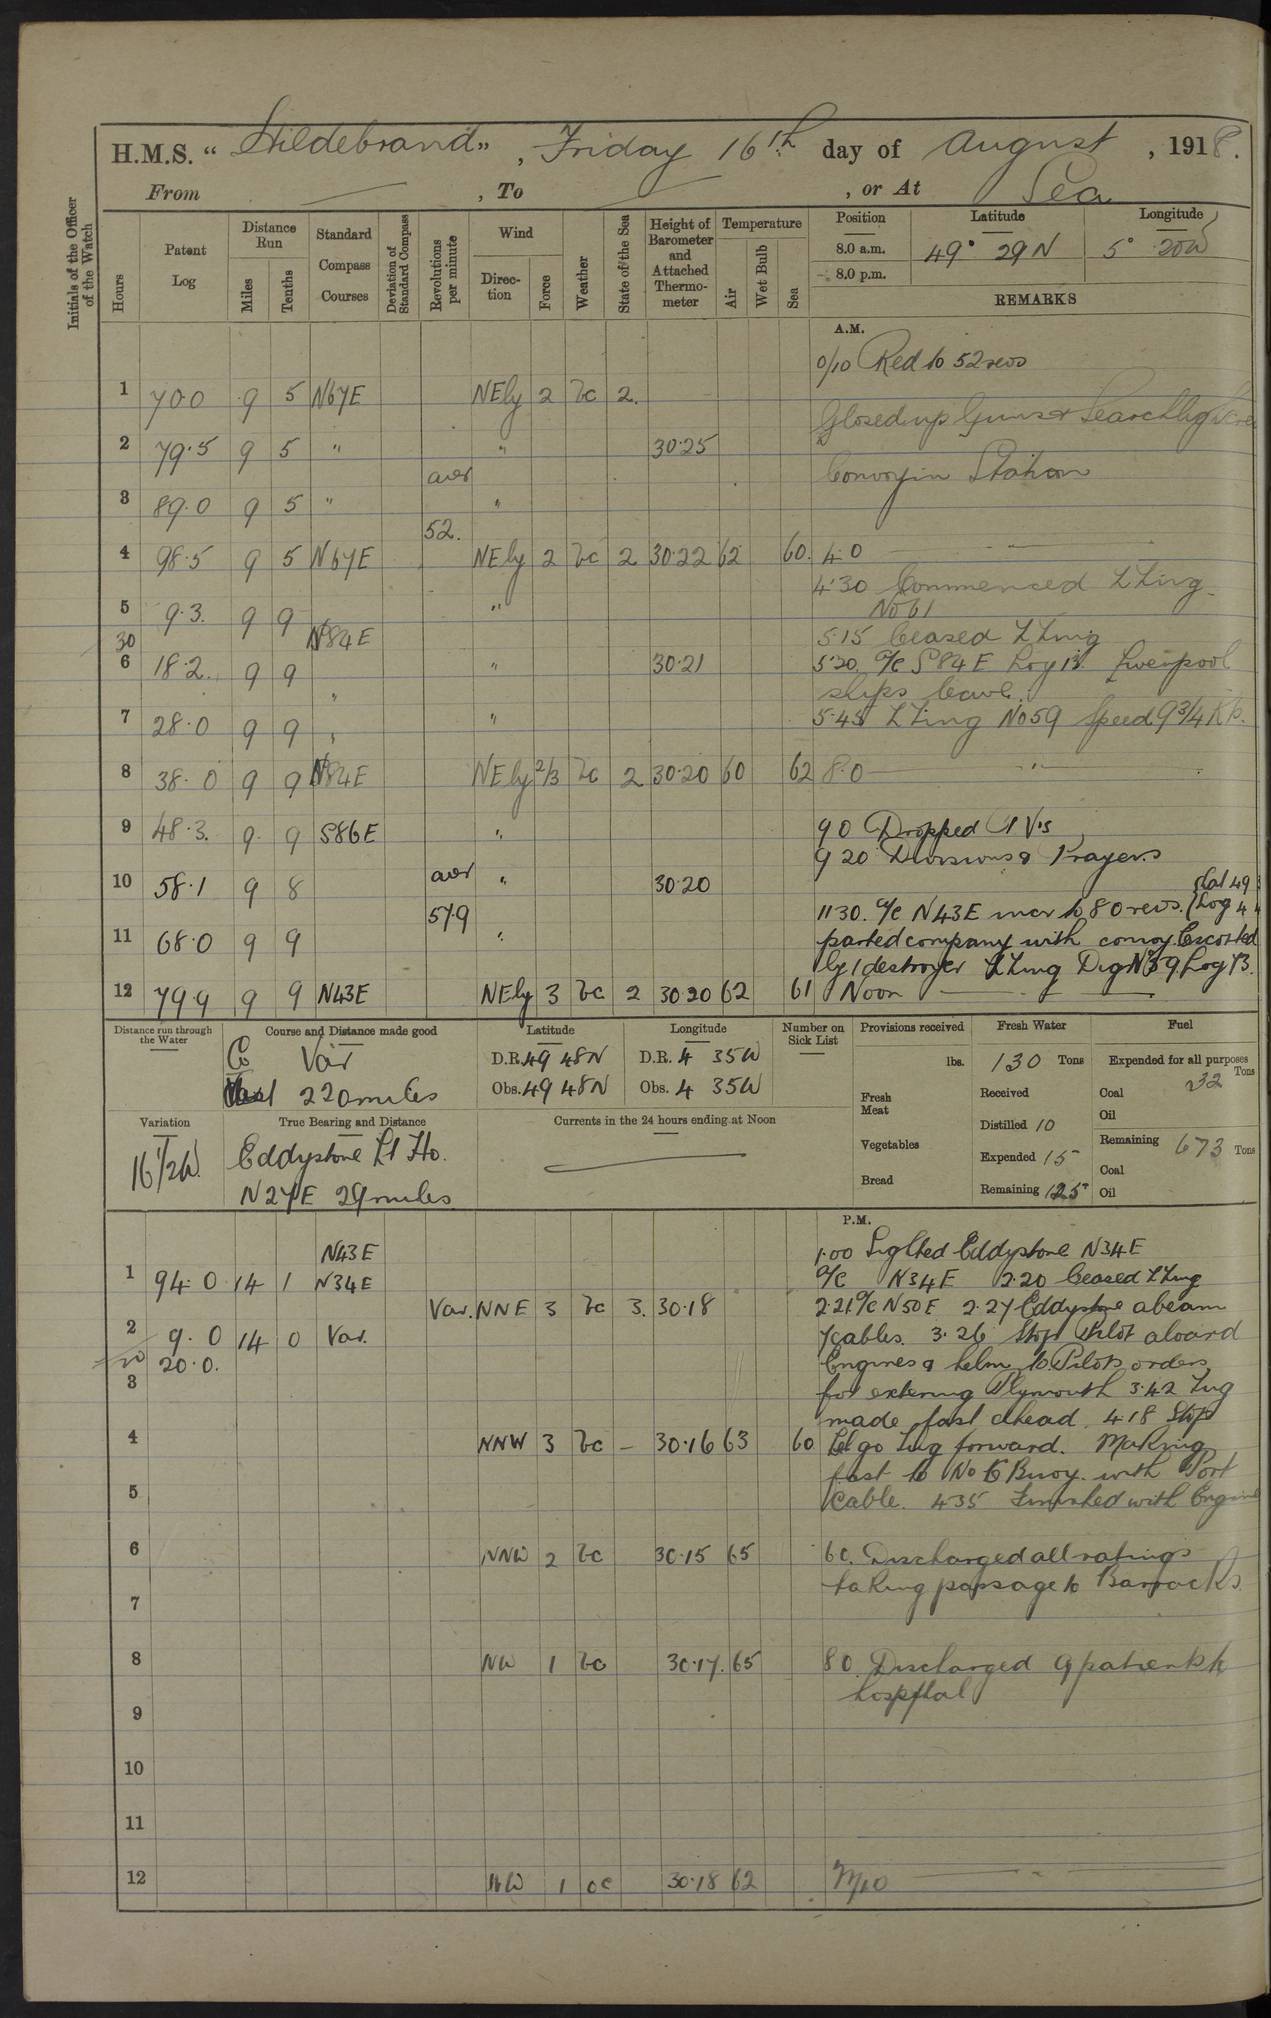 H.M.S. "Hildebrand", Friday 16th day of August, 1918.
From — , To — , or At Sea
Initials of the Officer of the Watch
Hours
Patent Log
Distance Run
Miles
Tenths
Standard Compass Courses
Deviation of Standard Compass
Revolutions per minute
Wind
Direction
Force
Weather
State of the Sea
Height of Barometer and Attached Thermometer
Temperature
Air
Wet Bulb
Sea
Position
Latitude
Longitude
8.0 a.m. 49° 29 N 5° 20 W
8.0 p.m.
REMARKS
A.M.
0/10 Red to 52 revs
1 70.0 9 5 N67E NEly 2 bc 2.
Closed up Guns &
2 79.5 9 5 " " 30.25
aver
Convoy in Station
3 89.0 9 5 " "
52.
4 98.5 9 5 N67E NEly 2 bc 2 30.22 62 60. 4.0 —
4.30 Commenced ZZing
No 61
5 9.3. 9 9 "
30 N84E
5.15 Ceased ZZing
6 18.2. 9 9 " 30.21 5.30 A/C S84E Log 13. Liverpool
ships leave.
7 28.0 9 9 " " 5.45 ZZing No 59 Speed 9 3/4 Kts.
8 38.0 9 9 N84E NEly 2/3 bc 2 30.20 60 62 8.0 — " —
9 48.3. 9 9 S86E " 9 0 Dropped PVs
9 20 Divisions & Prayers
10 58.1 9 8 aver " 30.20
57.9 11 30. A/C N43E incr to 80 revs. (Lat 49
(Log 4
11 68.0 9 9 " parted company with convoy. Escorted
by 1 destroyer ZZing Dig No 59. Log 73.
12 79.9 9 9 N43E NEly 3 bc 2 30.20 62 61 Noon —
Distance run through the Water
Course and Distance made good
Co Var
220 miles
Latitude
D.R. 49 48N
Obs. 49 48N
Longitude
D.R. 4 35W
Obs. 4 35W
Number on Sick List
Provisions received
lbs.
Fresh Meat
Vegetables
Bread
Fresh Water
130 Tons
Received
Distilled 10
Expended 15
Remaining 125
Fuel
Expended for all purposes
32 Tons
Coal
Oil
Remaining 673 Tons
Coal
Oil
Variation
16 1/2 W.
True Bearing and Distance
Eddystone Lt Ho.
N27E 29 miles
Currents in the 24 hours ending at Noon
P.M.
N43E 1.00 Sighted Eddystone N34E
1 94.0 14 1 N34E A/C N34E 2.20 Ceased ZZing
Var. NNE 3 bc 3. 30.18 2.21 A/C N50E 2.27 Eddystone abeam
2 9.0 14 0 Var. 7 cables. 3.26 Stop Pilot aboard
20 20.0. Engines & helm to Pilots orders
3 for entering Plymouth 3.42 Tug
made fast ahead. 4.18 Stop
4 NNW 3 bc – 30.16 63 60 Let go Tug forward. Making
fast to No 6 Buoy. with Port
5 Cable. 4 35 Finished with Engine
6 NNW 2 bc 30.15 65 6 0. Discharged all ratings
taking passage to Barracks.
7
8 NW 1 bc 30.17. 65 8 0. Discharged 9 patients to
hospital
9
10
11
12 NW 1 bc 30.18 62 — " —